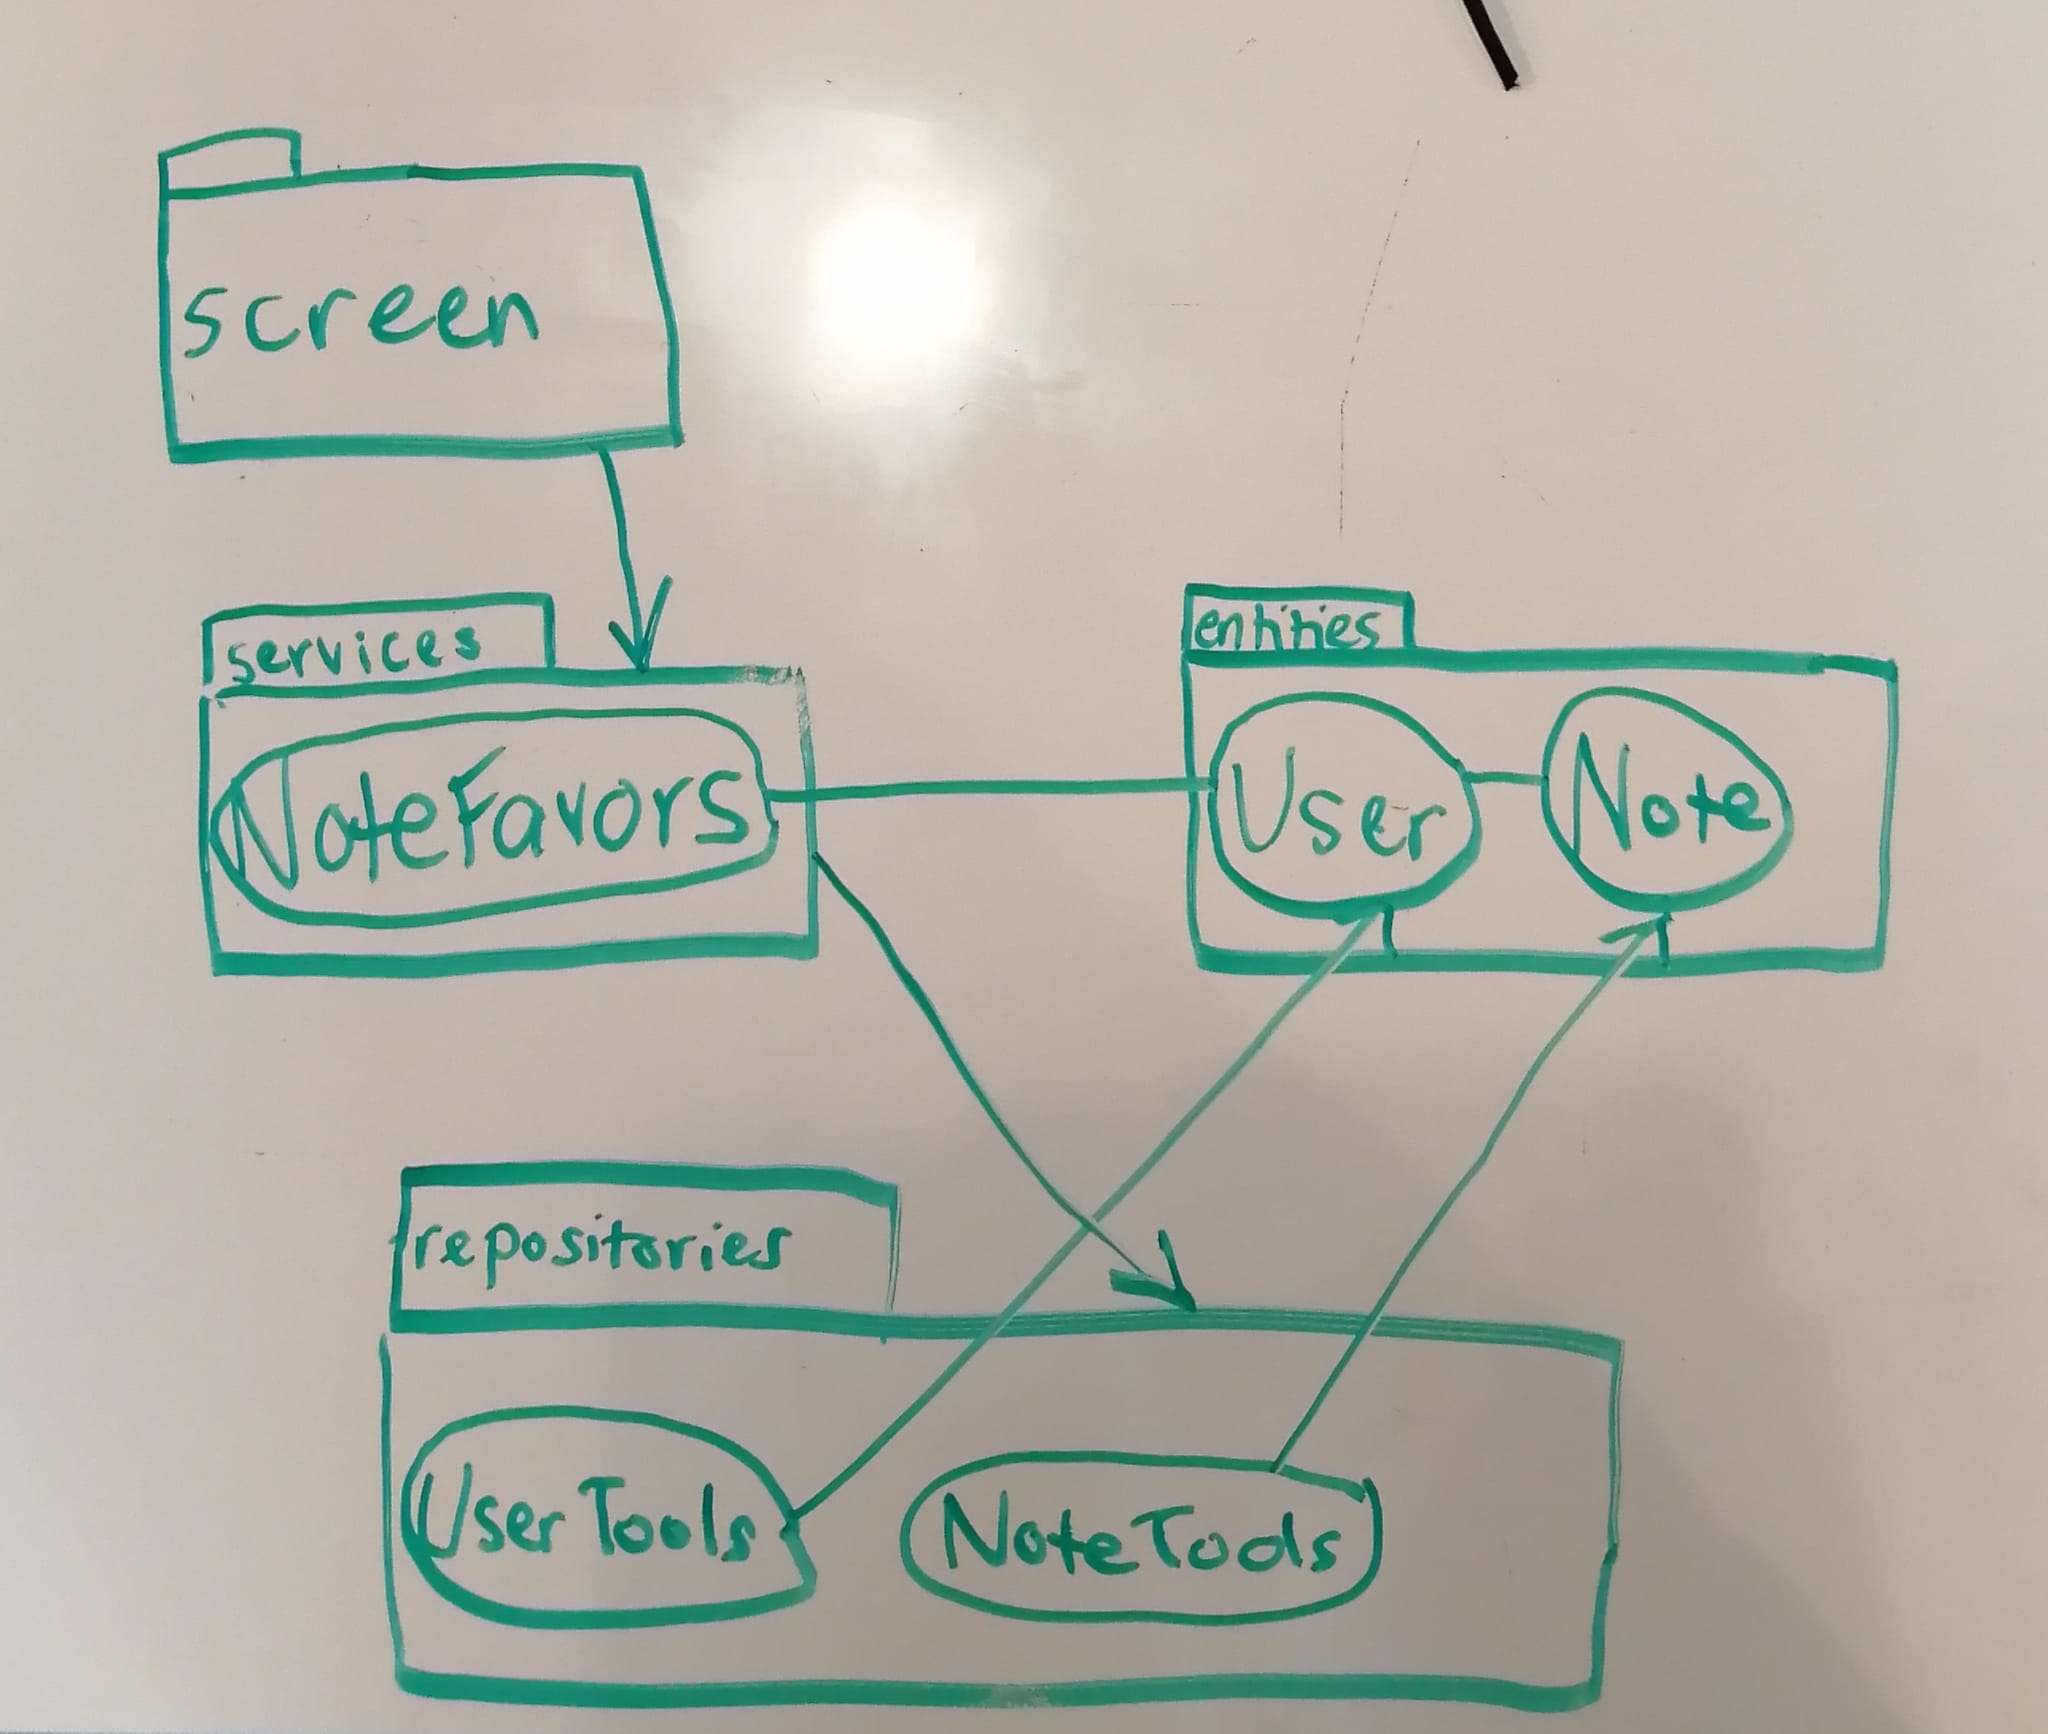 screen
services
NoteFavors
entities
User
Note
repositories
UserTools
NoteTools